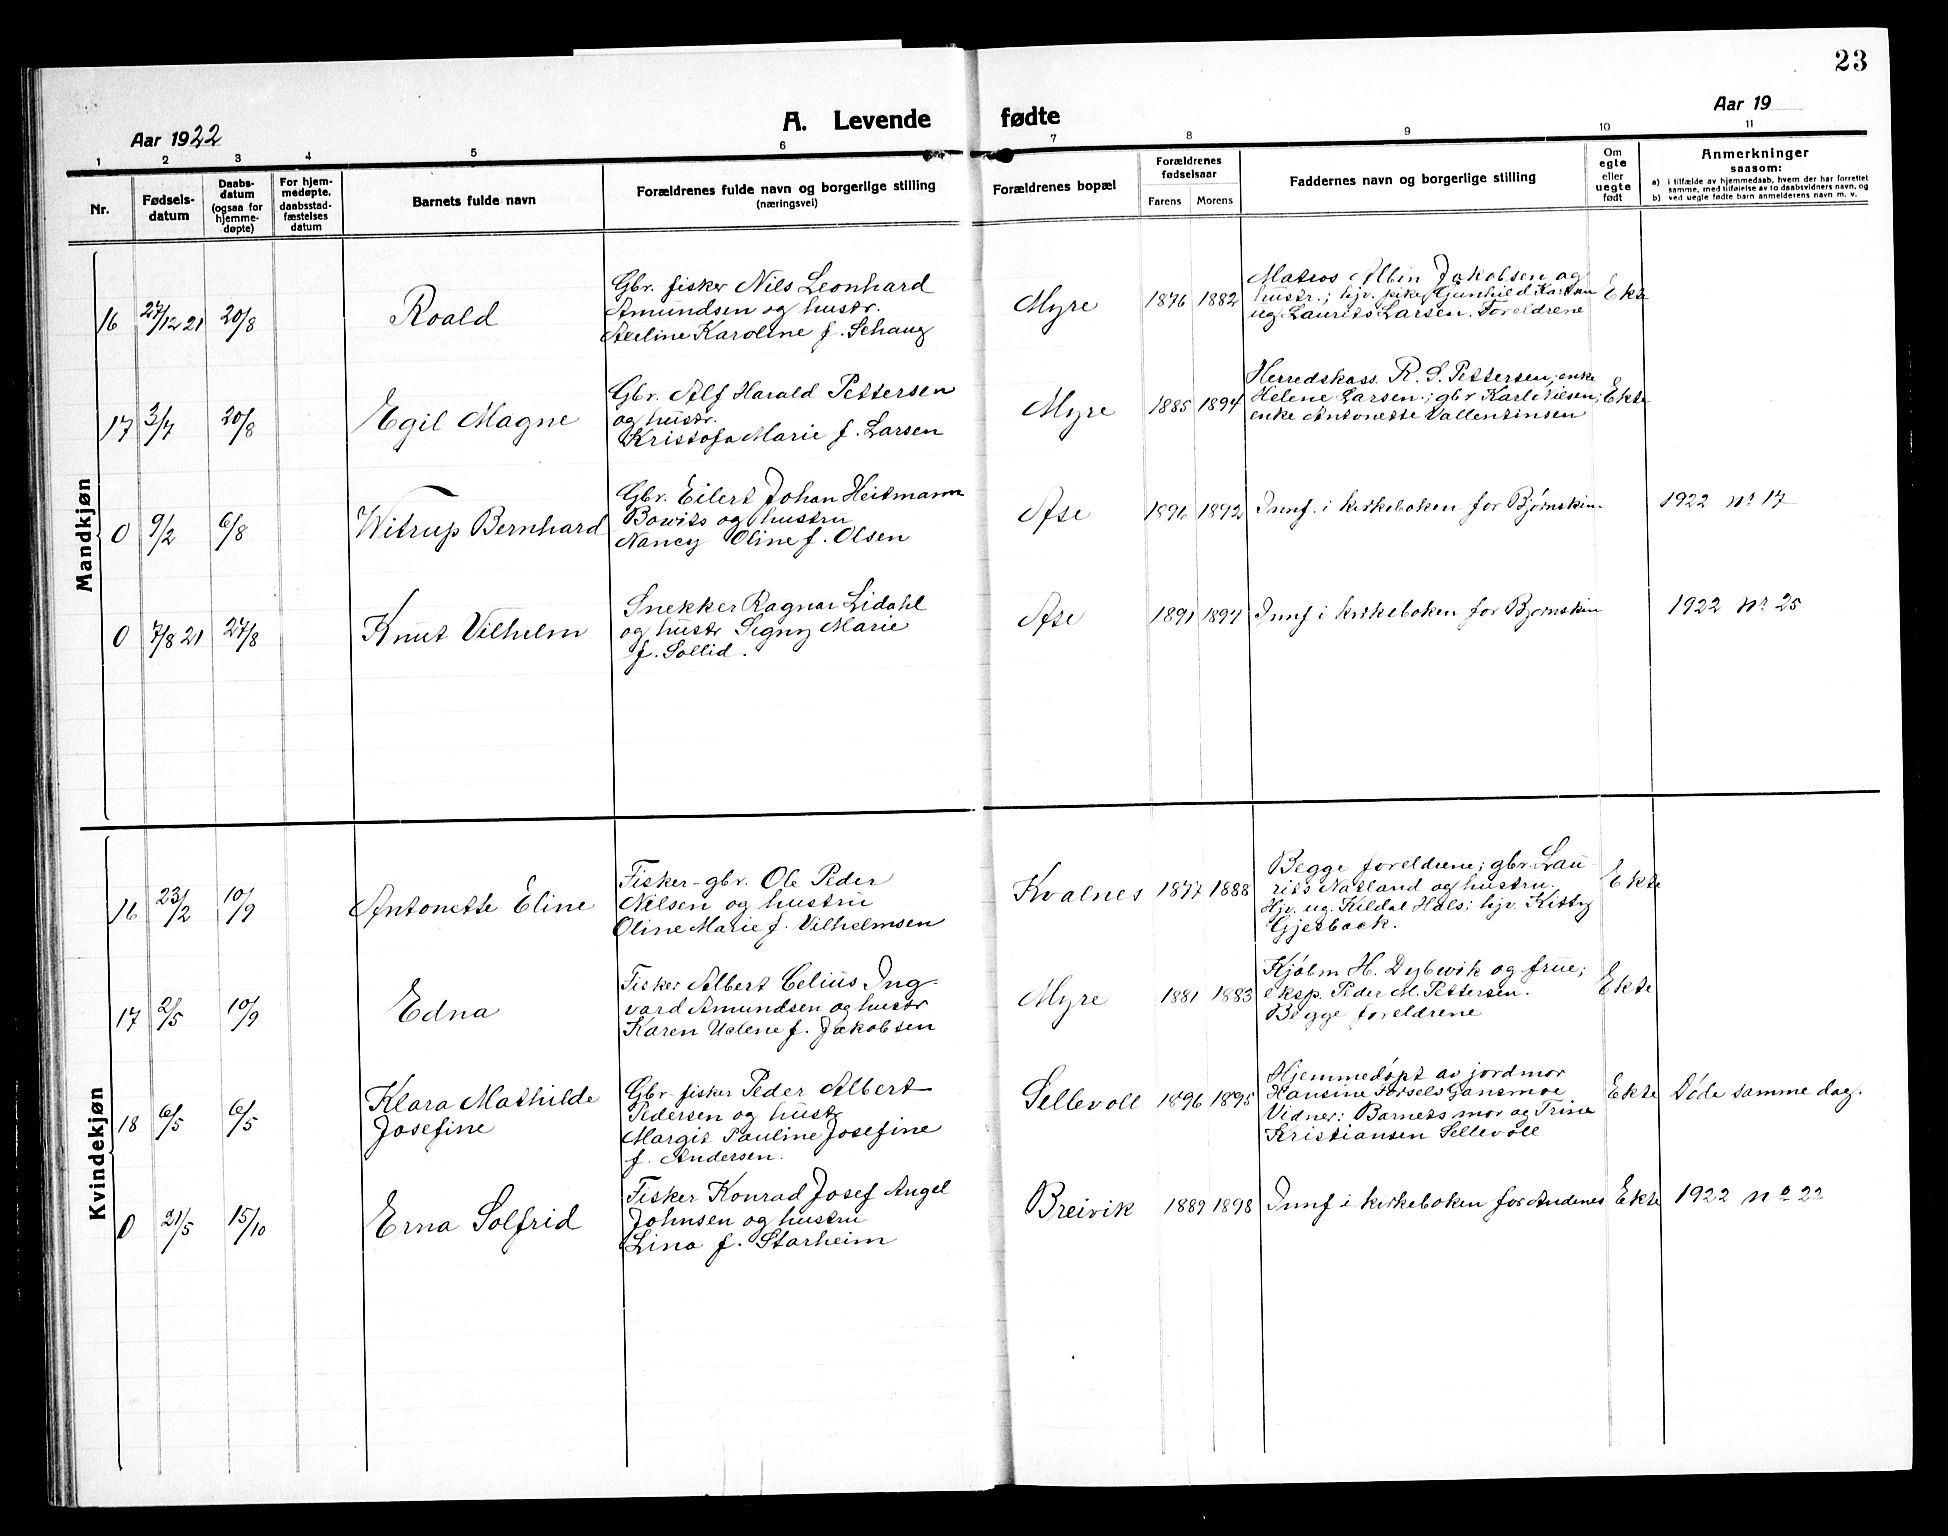 23
Aar 1922
A. Levende fødte
Aar 19
1 2 3 4 5 6 7 8 9 10 11
Nr.
Fødsels-
datum
Daabs-
datum
(ogsaa for
hjemme-
døpte)
For hjem-
medøpte,
daabsstad-
fæstelses
datum
Barnets fulde navn
Forældrenes fulde navn og borgerlige stilling
(næringsvei)
Forældrenes bopæl
Forældrenes
fødselsaar
Farens Morens
Faddernes navn og borgerlige stilling
Om
egte
eller
uegte
født
Anmerkninger
saasom:
a) i tilfælde av hjemmedaab, hvem der har forrettet
samme, med tilføielse av to daabsvidners navn, og
b) ved uegte fødte barn anmelderens navn m. v.
Mandkjøn
16 27/12 21 20/8
Roald
Gbr. fisker Nils Leonhard
Amundsen og hustr.
Karoline f. Schaug
Myre
1876 1882
Matros Albin Jakobsen og
hustr.; hjv. pike Gunhild Karlsen
ug Laurits Larsen. Foreldrene
Ekte
17 3/7 20/8
Egil Magne
Gbr. Alf Harald Pettersen
og hustr.
Kristofa Marie f. Larsen
Myre
1885 1894
Herredskass. R. S. Pettersen; enke
Helene Larsen; gbr Karl Nilsen;
enke Antonette Vallentinsen
Ekte
0 9/2 6/8
Witrup Bernhard
Gbr. Eilert Johan Heitmann
Bowits og hustru
Nancy Oline f. Olsen
Åse
1896 1892
Innf. i kirkeboken for Bjørnskin.
1922 nr 17
0 7/8 21 27/8
Knut Vilhelm
Snekker Ragnar Lidahl
og hustr Signy Marie
f. Sollid.
Åse
1891 1897
Innf i kirkeboken for Bjørnskin
1922 nr 25
Kvindekjøn
16 23/2 10/9
Antonette Eline
Fisker-gbr. Ole Peder
Nilsen og hustru
Oline Marie f. Vilhelmsen
Kvalnes
1877 1888
Begge foreldrene; gbr. Lau-
rits Natland og hustru.
Hjv. ug. Kildal Hals; hjv. Kitty
Gjerback.
Ekte
17 2/5 10/9
Edna
Fisker Albert Celius Ing-
vard Amundsen og hustr
Karen f. Jakobsen
Myre
1881 1883
Kjøbm H. Dybwik og frue;
eksp. Peder M. Pettersen.
Begge foreldrene
Ekte
18 6/5 6/5
Klara Mathilde
Josefine
Gbr. fisker Peder Albert
Pedersen og hustr
Margit Pauline Josefine
f. Andersen.
Sellevoll
1896 1895
Hjemmedøpt av jordmor
Hansine Forsels Gansmoe
Vidner: Barnets mor og Trine
Kristiansen Sellevoll
Ekte
Døde samme dag.
0 21/5 15/10
Erna Solfrid
Fisker Konrad Josef Angel
Johnsen og hustru
Lina f. Starheim
Breivik
1889 1898
Innf i kirkeboken for Andenes
Ekte
1922 nr 22